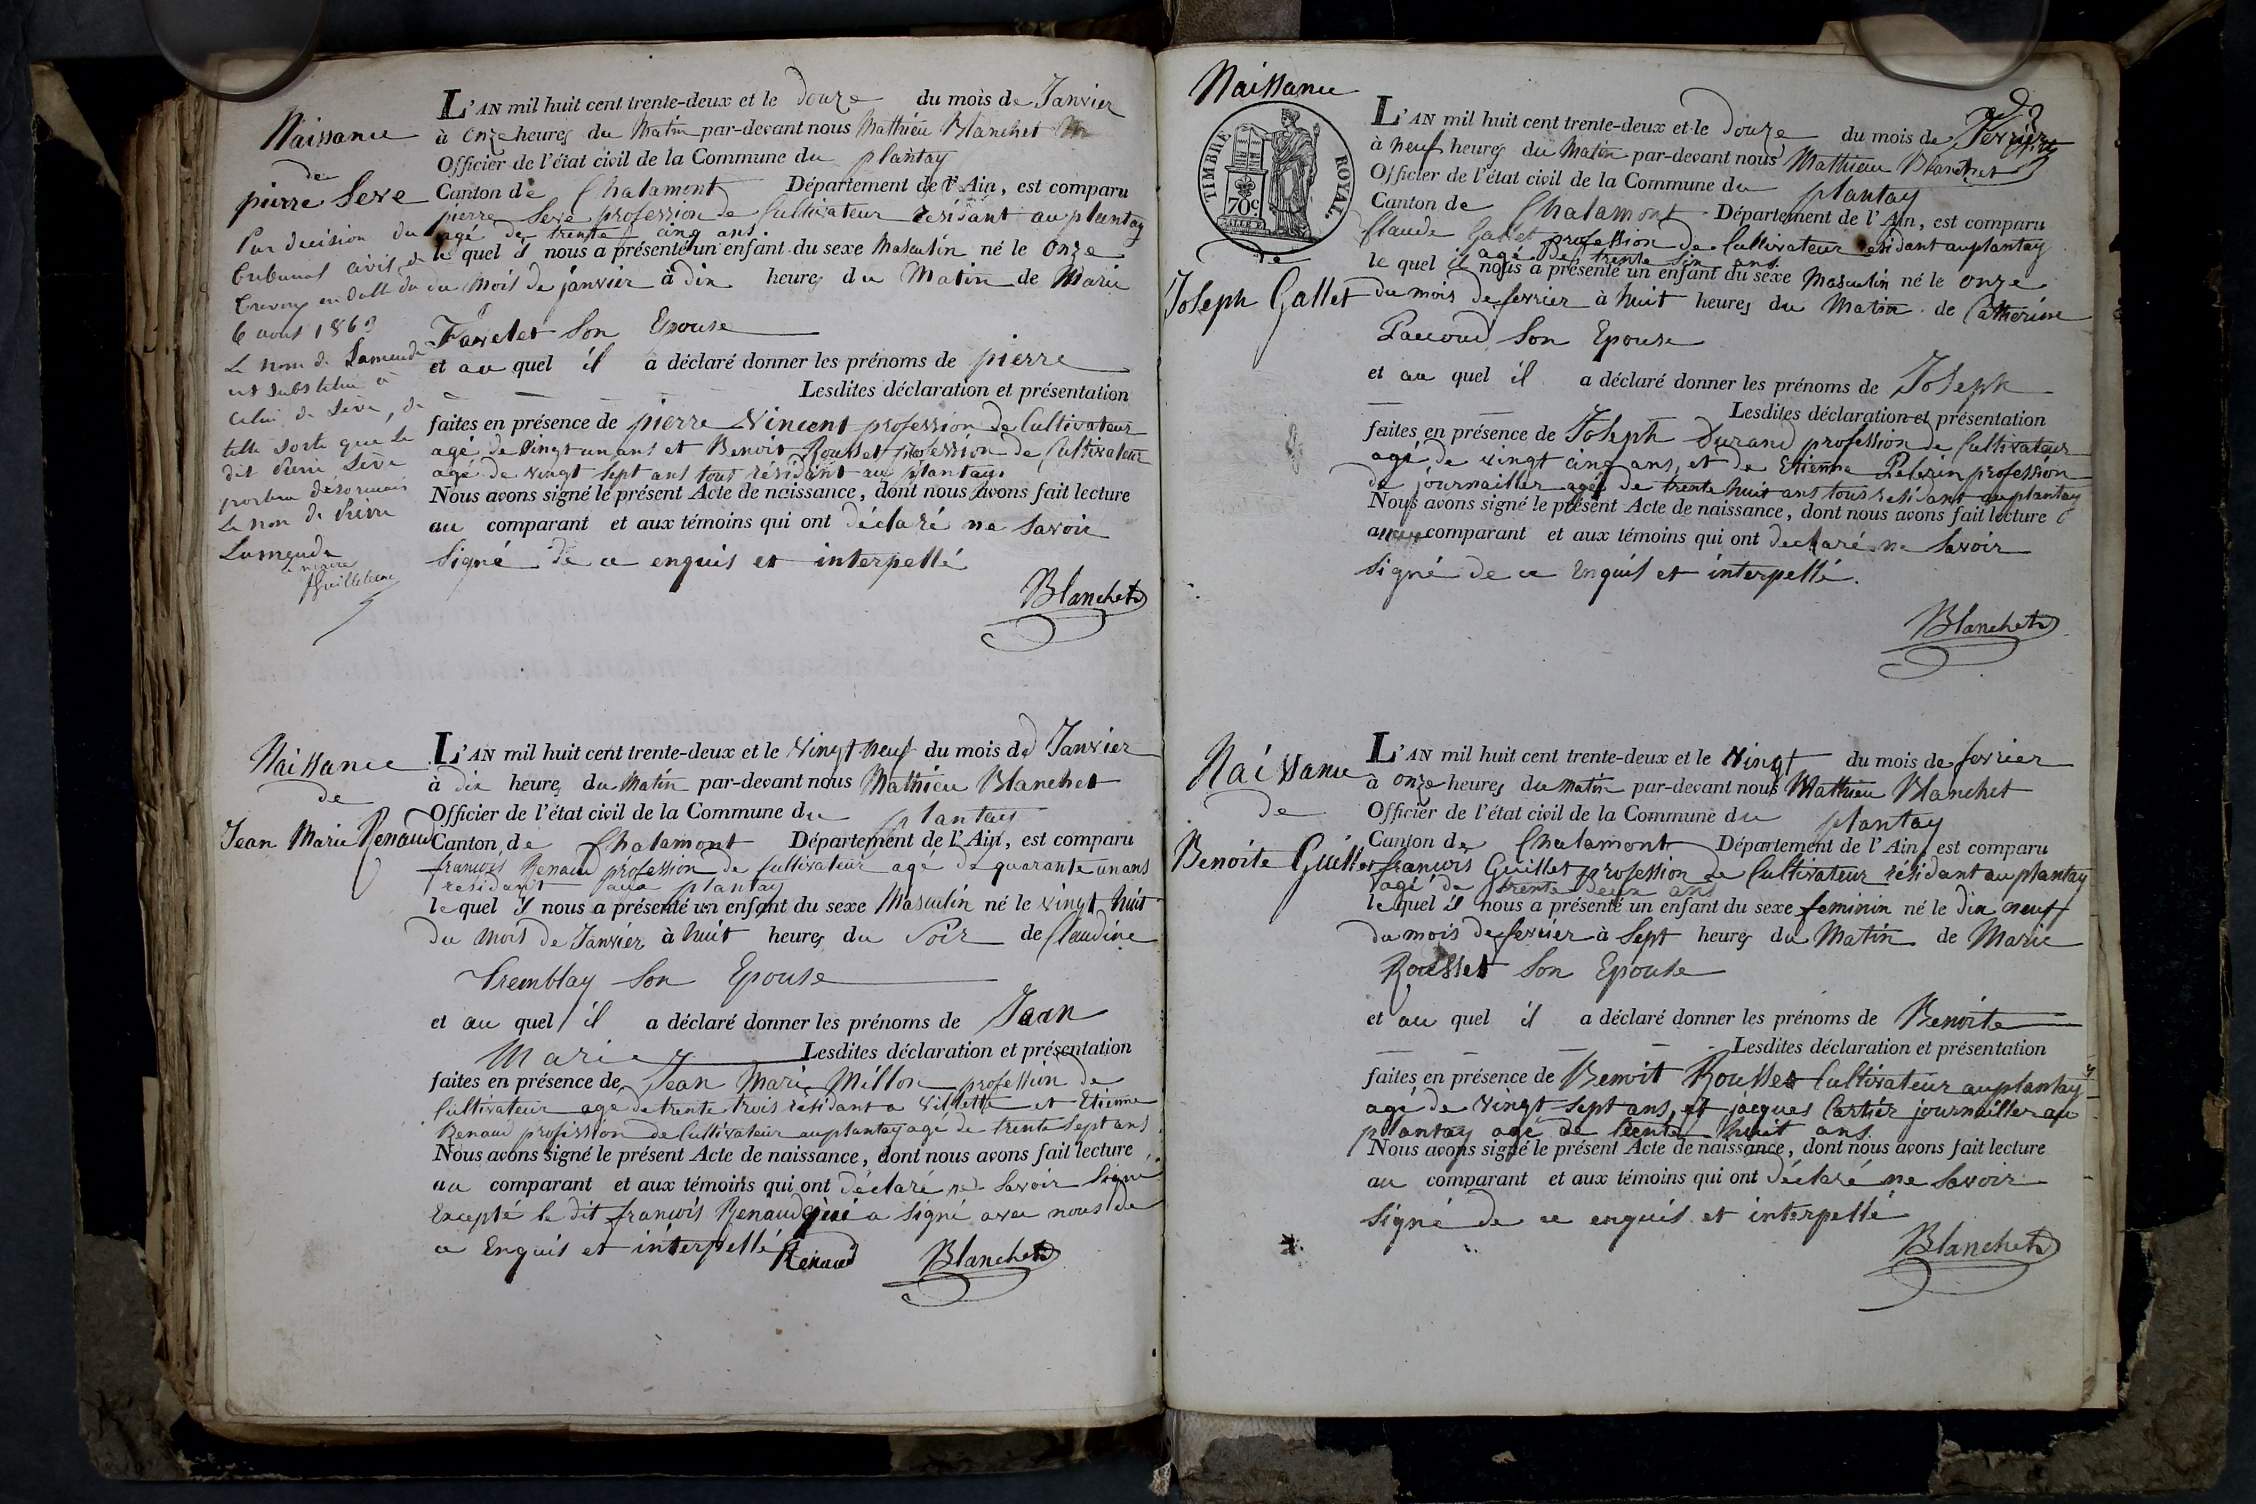 Naissance
de
pierre Seve
Par decision du
tribunal civil de
Trevoux en datte du
6 aout 1863
Le nom de Lamende
est substitué à
celui de Sève, de
telle sorte que le
dit Pierre Sève
portera désormais
Le nom de Pierre
Lamende
L'AN mil huit cent trente-deux et le douze du mois de Janvier
à onze heures du Matin par-devant nous Mathieu Blanchet
Officier de l'état civil de la Commune du plantay
Canton de Chalamont Département de l'Ain, est comparu
pierre Seve profession de Cultivateur résidant au plantay
agé de trente cinq ans
le quel il nous a présenté un enfant du sexe Masculin né le onze
du Mois de janvier à dix heures du Matin de Marie
Favelet Son Epouse
et au quel il a déclaré donner les prénoms de pierre
Lesdites déclaration et présentation
faites en présence de pierre Vincent profession de Cultivateur
agé de vingt un ans et Benoit Rousset profession de Cultivateur
agé de vingt sept ans tous résidant au plantay
Nous avons signé le présent Acte de naissance, dont nous avons fait lecture
au comparant et aux témoins qui ont déclaré ne Savoir
Signé de ce enquis et interpellé
Blanchet
Naissance
de
Jean Marie Renaud
L'AN mil huit cent trente-deux et le vingt neuf du mois de Janvier
à dix heures du Matin par-devant nous Mathieu Blanchet
Officier de l'état civil de la Commune du plantay
Canton de Chalamont Département de l'Ain, est comparu
françois Renaud profession de Cultivateur agé de quarante un ans
résidant au plantay
le quel il nous a présenté un enfant du sexe Masculin né le vingt huit
du mois de Janvier à huit heures du Soir de Claudine
Tremblay Son Epouse
et au quel il a déclaré donner les prénoms de Jean
Marie Lesdites déclaration et présentation
faites en présence de Jean Marie Millon profession de
Cultivateur agé de trente trois résidant a Villette et Etienne
Renaud profession de Cultivateur au plantay agé de trente Sept ans
Nous avons signé le présent Acte de naissance, dont nous avons fait lecture
au comparant et aux témoins qui ont déclaré ne Savoir Signé
Excepté le dit françois Renaud qui a Signé avec nous de
ce Enquis et interpellé Renaud Blanchet
Naissance
TIMBRE ROYAL
70c
de
Joseph Gallet
L'AN mil huit cent trente-deux et le Douze du mois de Fevrier
à neuf heures du Matin par-devant nous Mathieu Blanchet
Officier de l'état civil de la Commune du plantay
Canton de Chalamont Département de l'Ain, est comparu
Claude Gallet profession de Cultivateur résidant au plantay
agé de trente six ans
le quel il nous a présenté un enfant du sexe Masculin né le onze
du mois de fevrier à huit heures du Matin de Catherine
Paccoud Son Epouse
et au quel il a déclaré donner les prénoms de Joseph
Lesdites déclaration et présentation
faites en présence de Joseph Durand profession de Cultivateur
agé de vingt cinq ans, et de Etienne Pelerin profession
de journailler agé de trente huit ans tous résidant au plantay
Nous avons signé le présent Acte de naissance, dont nous avons fait lecture
au comparant et aux témoins qui ont déclaré ne Savoir
Signé de ce Enquis et interpellé.
Blanchet
Naissance
de
Benoite Guillet
L'AN mil huit cent trente-deux et le Vingt du mois de fevrier
à onze heures du matin par-devant nous Mathieu Blanchet
Officier de l'état civil de la Commune du plantay
Canton de Chalamont Département de l'Ain, est comparu
françois Guillet profession de Cultivateur résidant au plantay
agé de trente deux ans
le quel il nous a présenté un enfant du sexe feminin né le dix neuf
du mois de fevrier à Sept heures du Matin de Marie
Rousset Son Epouse
et au quel il a déclaré donner les prénoms de Benoite
Lesdites déclaration et présentation
faites en présence de Benoit Rousset Cultivateur au plantay
agé de vingt Sept ans, et jacques Cartier journailler au
plantay agé de trente huit ans
Nous avons signé le présent Acte de naissance, dont nous avons fait lecture
au comparant et aux témoins qui ont déclaré ne Savoir
Signé de ce enquis et interpellé
Blanchet